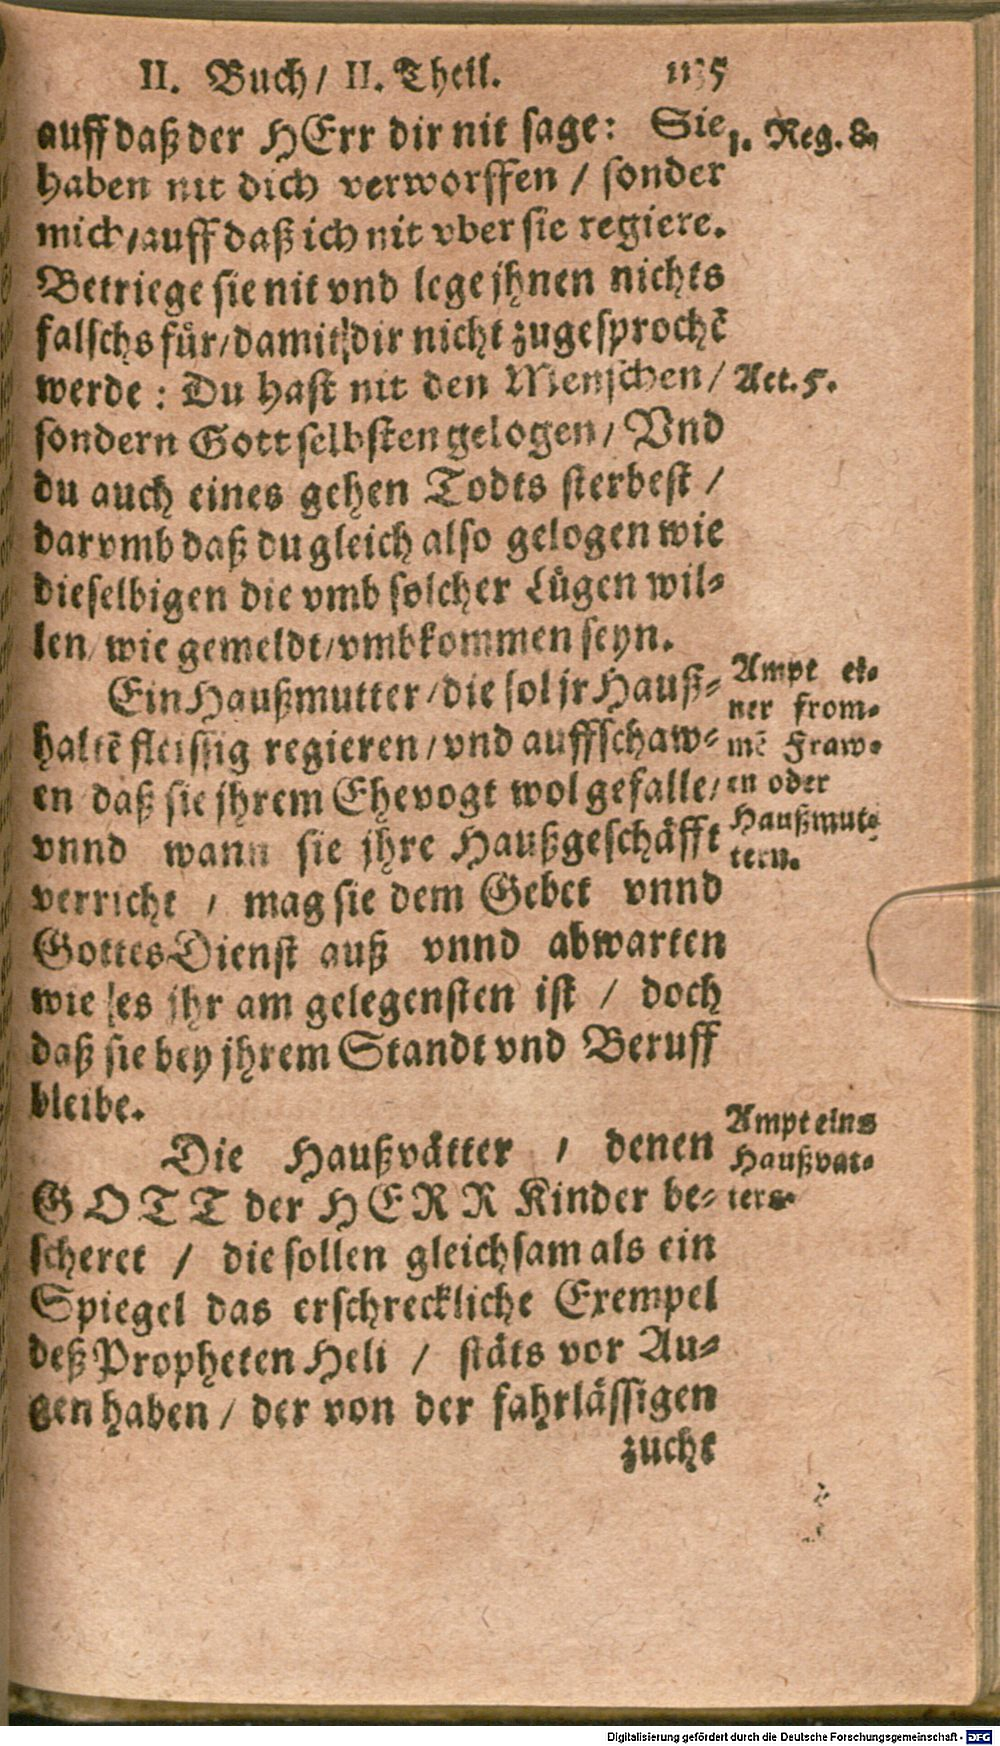 II. Buch/ II. Theil. 1135
auff daß der HErr dir nit sage: Sie
haben nit dich verworffen / sonder
mich/auff daß ich nit vber sie regiere.
Betriege sie nit vnd lege jhnen nichts
falschs fůr/damit dir nicht zugesprochē
werde : Du hast nit den Menschen/
sondern Gott selbsten gelogen/ Vnd
du auch eines gehen Todts sterbest /
darvmb daß du gleich also gelogen wie
dieselbigen die vmb solcher Lůgen wil-
len/ wie gemeldt/vmbkommen seyn.
Ein Haußmutter/die sol jr Hauß-
haltē fleissig regieren/vnd auffschaw-
en daß sie jhrem Ehevogt wol gefalle/
vnnd wann sie jhre Haußgeschäfft
verricht / mag sie dem Gebet vnnd
GottesDienst auß vnnd abwarten
wie es jhr am gelegensten ist / doch
daß sie bey jhrem Standt vnd Beruff
bleibe.
Die Haußvätter / denen
GOTT der HERR Kinder be-
scheret / die sollen gleichsam als ein
Spiegel das erschreckliche Exempel
deß Propheten Heli / stäts vor Au-
gen haben/ der von der fahrlässigen
zucht
1. Reg. 8.
Act. 5.
Ampt ei-
ner from-
mē Fraw-
en oder
Haußmut-
tern.
Ampt eins
Haußvat-
ters.
Digitalisierung gefördert durch die Deutsche Forschungsgemeinschaft - DFG